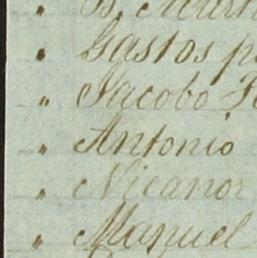 " B. Mart
" Gastos p
" Jacobo F
" Antonio
" Nicanor
" Manuel